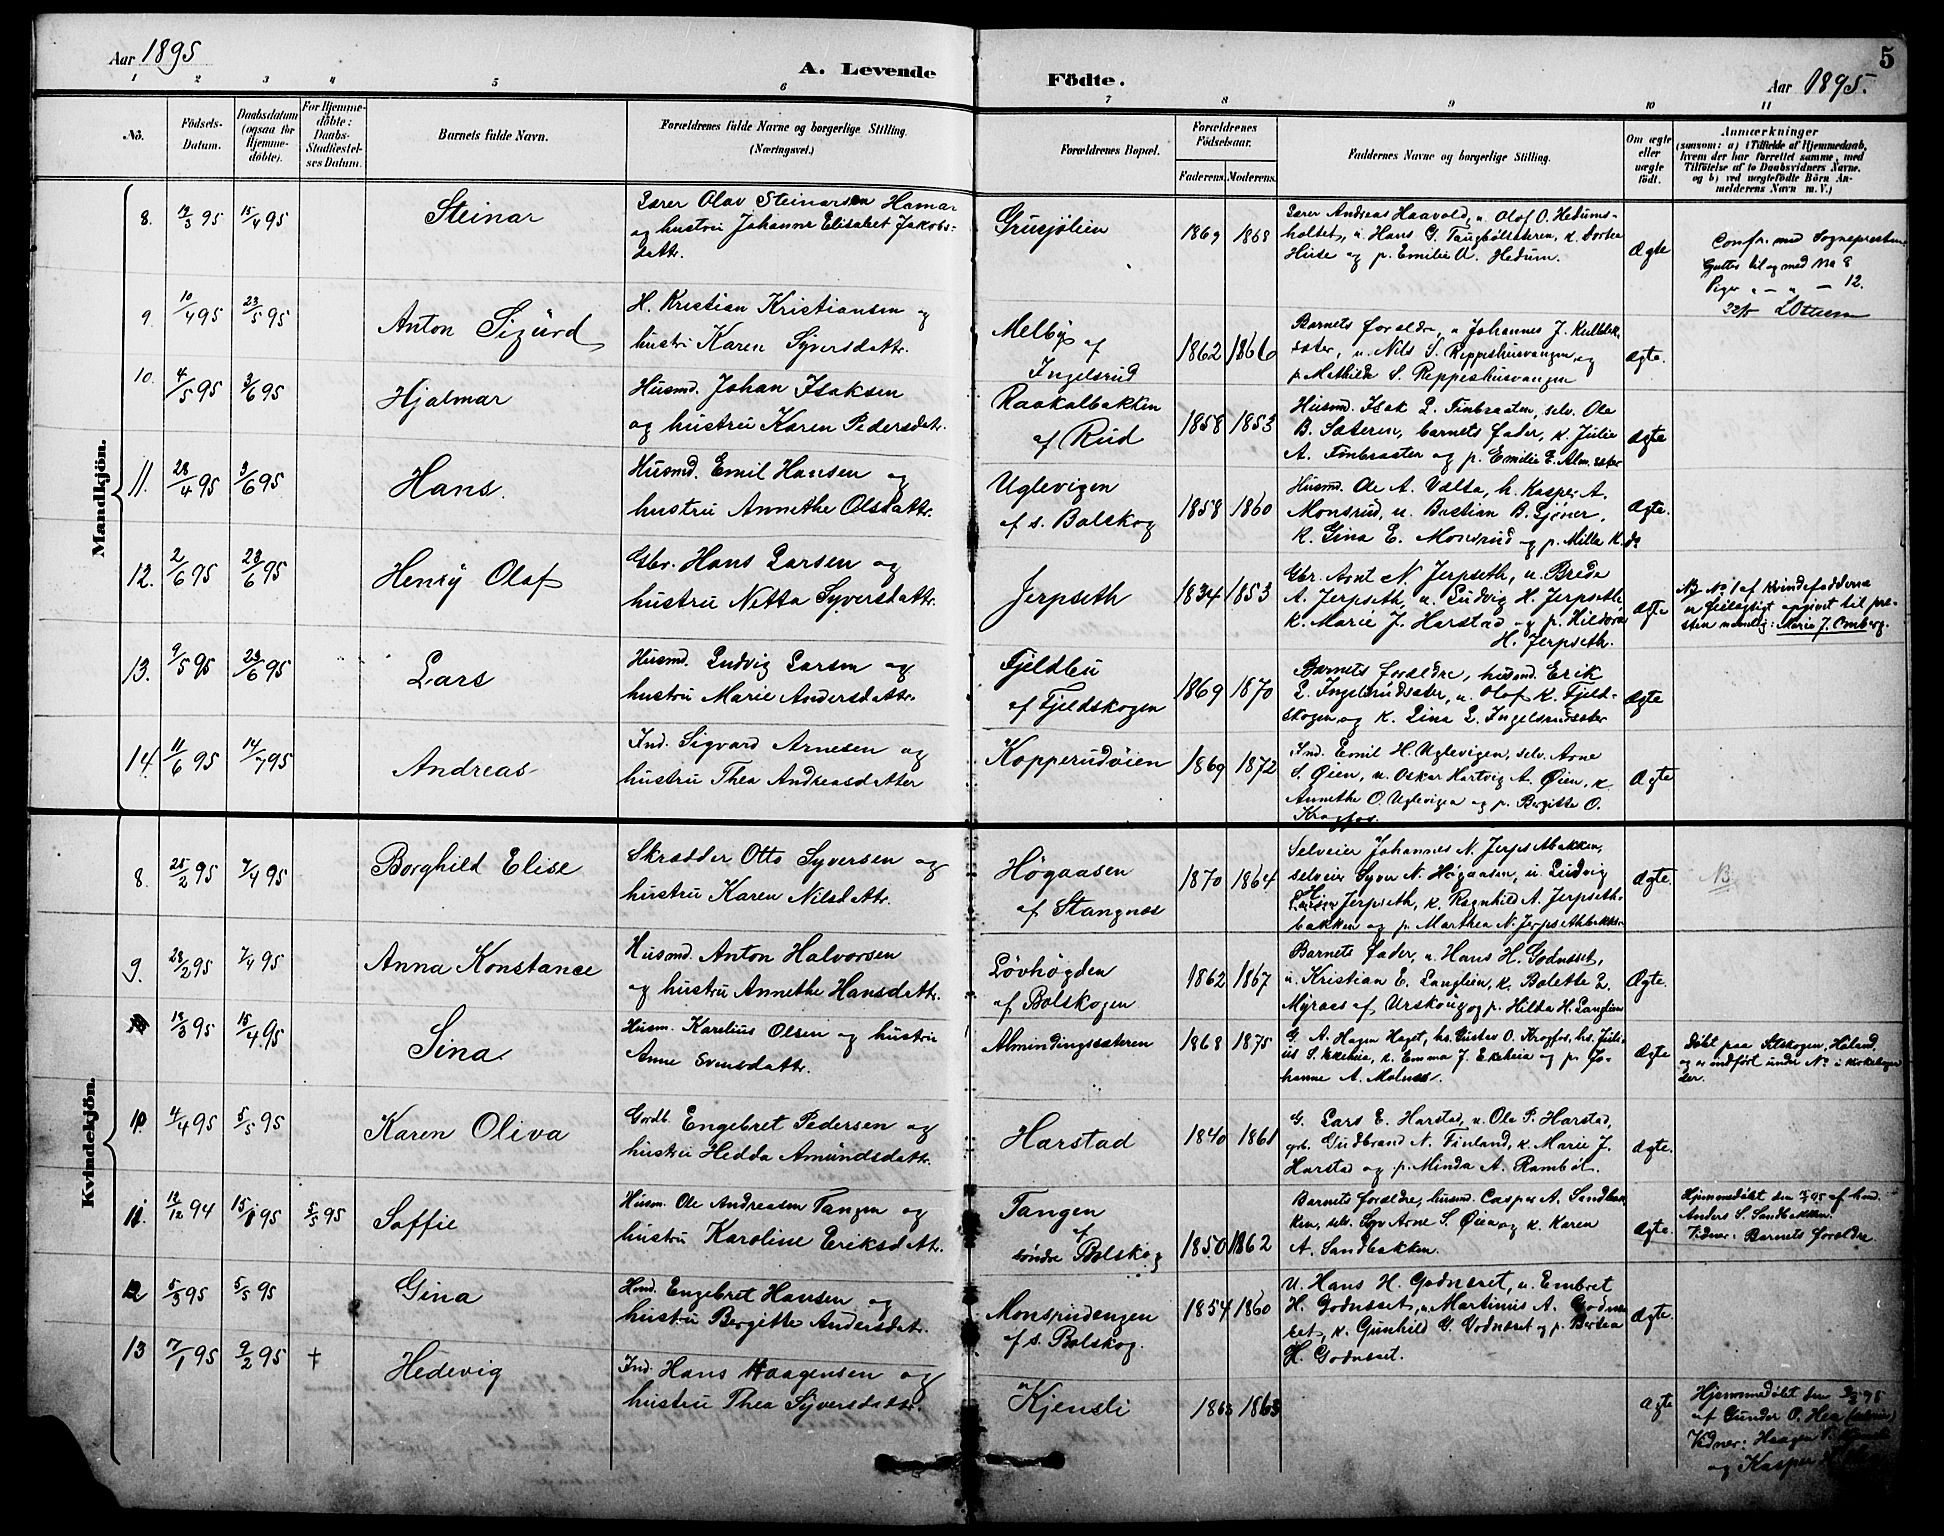 Aar 1895
A. Levende Födte.
Aar 1895.
5
1 2 3 4 5 6 7 8 9 10 11
No. Födsels-Datum. Daabsdatum (ogsaa for Hjemmedöbte). For Hjemmedöbte: Daabs-Stadfæstelses Datum. Barnets fulde Navn. Forældrenes fulde Navne og borgerlige Stilling. (Næringsvei.) Forældrenes Bopæl. Forældrenes Födselsaar. Faderens. Moderens. Faddernes Navne og borgerlige Stilling. Om ægte eller uægte födt. Anmærkninger (saasom: a) i Tilfælde af Hjemmedaab, hvem der har forrettet samme, med Tilföielse af to Daabsvidners Navne. og b) ved uægtefödte Börn Anmelderens Navn m. V.)
Mandkjön.
8. 12/3 95 15/4 95 Steinar Lærer Olav Steinarsen Hamar
og hustru Johanne Elisabet Jakobs-
datr. Grusjölien 1869 1868 Lærer Andreas Haavold, u. Olof O. Hedums-
holtet, u. Hans G. Taugbölsæteren, k. Dortea
Huse og p. Emilie A. Hedum. Ægte Conf. med Sognepresten
Gutter til og med No 8
Piger " — " — 12.
9. 10/4 95 23/5 95 Anton Sigurd H. Kristian Kristiansen og
hustru Karen Syversdattr. Melby af
Ingelsrud 1862 1866 Barnets forældre, u. Johannes J. Kulblik-
sæter, u. Nils S. Reppeshusvangen og
p. Mathilde S. Reppeshusvangen Ægte.
10. 4/5 95 3/6 95 Hjalmar Husmd. Johan Isaksen
og hustru Karen Pedersdatr. Raakalbakken
af Rud 1858 1853 Husmd. Isak L. Finbraaten, selv. Ole
B. Sæteren, barnets fader, k. Julie
A. Finbraaten og p. Emilie E. Alm. sæter Ægte
11. 28/4 95 3/6 95 Hans. Husmd. Emil Hansen og
hustru Annethe Olsdattr. Uglevigen
af s. Bolskog 1858 1860 Husmd. Ole A. Vælta, h. Kasper A.
Monsrud, u. Bastian B. Sjöner,
k. Gina E. Monsrud og p. Milla K. ds Ægte.
12. 2/6 95 23/6 95 Henry Olaf Gbr. Hans Larsen og
hustru Netta Syversdattr. Jerpseth 1834 1853 Gbr. Arnt N. Jerpseth, u. Brede
A. Jerpseth, u. Ludvig H. Jerpseth
k. Marie J. Harstad og p. Hildora
H. Jerpseth. Ægte NB No 1 af Kvindefadderne
er feilagtigt opgivet til pre-
sten nemlig: Marie J. Omberg.
13. 9/5 95 23/6 95 Lars Husmd. Ludvig Larsen og
hustru Marie Andersdattr. Fjeldbu
af Fjeldskogen 1869 1870 Barnets forældre, husmd. Erik
L. Ingelsrudsæter, u. Olof K. Fjeld-
skogen og k. Lina L. Ingelsrudsæter Ægte
14. 11/6 95 14/7 95 Andreas Ind. Sigvard Arnesen og
hustru Thea Andreasdatter Kopperudöien 1869 1872 Ind. Emil H. Uglevigen, selv. Arne
S. Öien, u. Oskar Hartvig A. Öien, k.
Annethe O. Uglevigen og p. Bergitte O.
Krogfos. Ægte
Kvindekjön.
8. 25/2 95 7/4 95 Borghild Elise Skrædder Otto Syversen og
hustru Karen Nilsdattr. Högaasen
af Stangnæs 1870 1864 Selveier Johannes N. Jerpsethbakken,
selveier Syver N. Högaasen, u. Ludvig
H. Jerpseth, k. Ragnhild A. Jerpseth-
bakken og p. Marthea N. Jerpsethbakken Ægte. NB
9. 23/2 95 7/4 95 Anna Konstance Husmd. Anton Halvorsen
og hustru Annethe Hansdattr. Lövhögden
af Bolskogen 1862 1867 Barnets fader, u. Hans H. Godnæset,
u. Kristian E. Langlien, k. Bolette L.
Myraas af Urskoug og p. Hilda H. Langlien Ægte.
12/3 95 15/4 95 Sina Husm. Karelius Olsen og hustru
Anne Evensdattr. Almindingssæteren 1868 1875 G. A. Hagen Haget, hs. Gustav O. Krogfos, hs. Juli-
us S. Ekeheia, k. Emma J. Ekeheia og p. Jo-
hanne A. Molness. Ægte Döbt paa Setskogen, Höland
og er indfört under No i kirkebogen
der.
10. 4/4 95 5/5 95 Karen Oliva Gordb. Engebret Pedersen og
hustru Hedda Amundsdattr. Harstad 1840 1861 G. Lars E. Harstad, u. Ole P. Harstad,
grb. Gudbrand N. Finland, k. Marie J.
Harstad og p. Minda A. Ramböl. Ægte.
11. 12/12 94 15/1 95 5/5 95 Soffie Husm. Ole Andreasen Tangen og
hustru Karoline Eriksdattr. Tangen
af
söndre Bolskog 1850 1862 Barnets forældre, husmd. Casper A. Sandbak-
ken, selv. Arne S. Öien og k. Karen
A. Sandbakken. Ægte. Hjemmedöbt den 95 af hmd.
Anders S. Sandbakken.
Vidner: Barnets forældre.
12 5/3 95 5/5 95 Gina Hmd. Engebret Hansen og
hustru Bergitte Andersdatr. Monsrudengen
af s. Bolskog. 1854 1860 U. Hans H. Godnæset, u. Embret
H. Godnæset, u. Martinus A. Godnæ-
set, k. Gunhild G. Godnæset og p. Bertea
H. Godnæset. Ægte
13 7/1 95 9/2 95 † Hedevig Ind. Hans Haagensen og
hustru Thea Syversdattr. Kjensli 1863 Ægte Hjemmedöbt den 95
af Gunder O. Hea
Vidner: Haagen
og Kasper